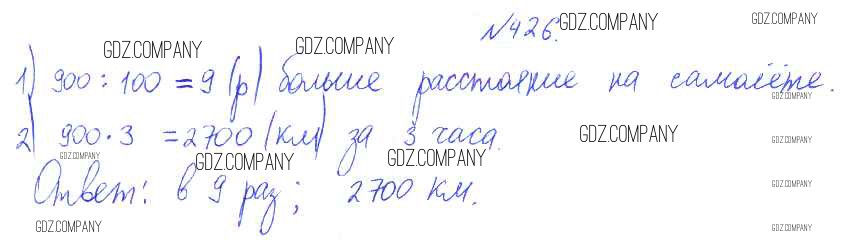 №426.
GDZ.COMPANY GDZ.COMPANY GDZ.COMPANY GDZ.COMPANY
1) 900 : 100 = 9 (р) больше расстояние на самолёте.
GDZ.COMPANY
2) 900 · 3 = 2700 (км) за 3 часа.
GDZ.COMPANY GDZ.COMPANY
GDZ.COMPANY GDZ.COMPANY GDZ.COMPANY
Ответ: в 9 раз; 2700 км.
GDZ.COMPANY
GDZ.COMPANY GDZ.COMPANY